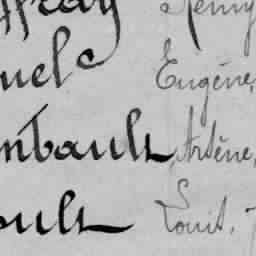 ffray Rémy
uel Eugène,
mbault, Arsène,
oult Louis,